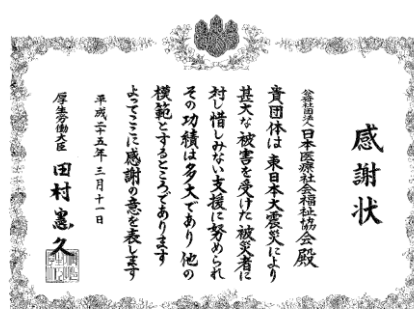 感謝状
公益社団法人日本医療社会福祉協会殿
貴団体は東日本大震災により
甚大な被害を受けた被災者に
対し惜しみない支援に努められ
その功績は多大であり他の
模範とするところであります
よってここに感謝の意を表します
平成二十五年三月十一日
厚生労働大臣 田村憲久